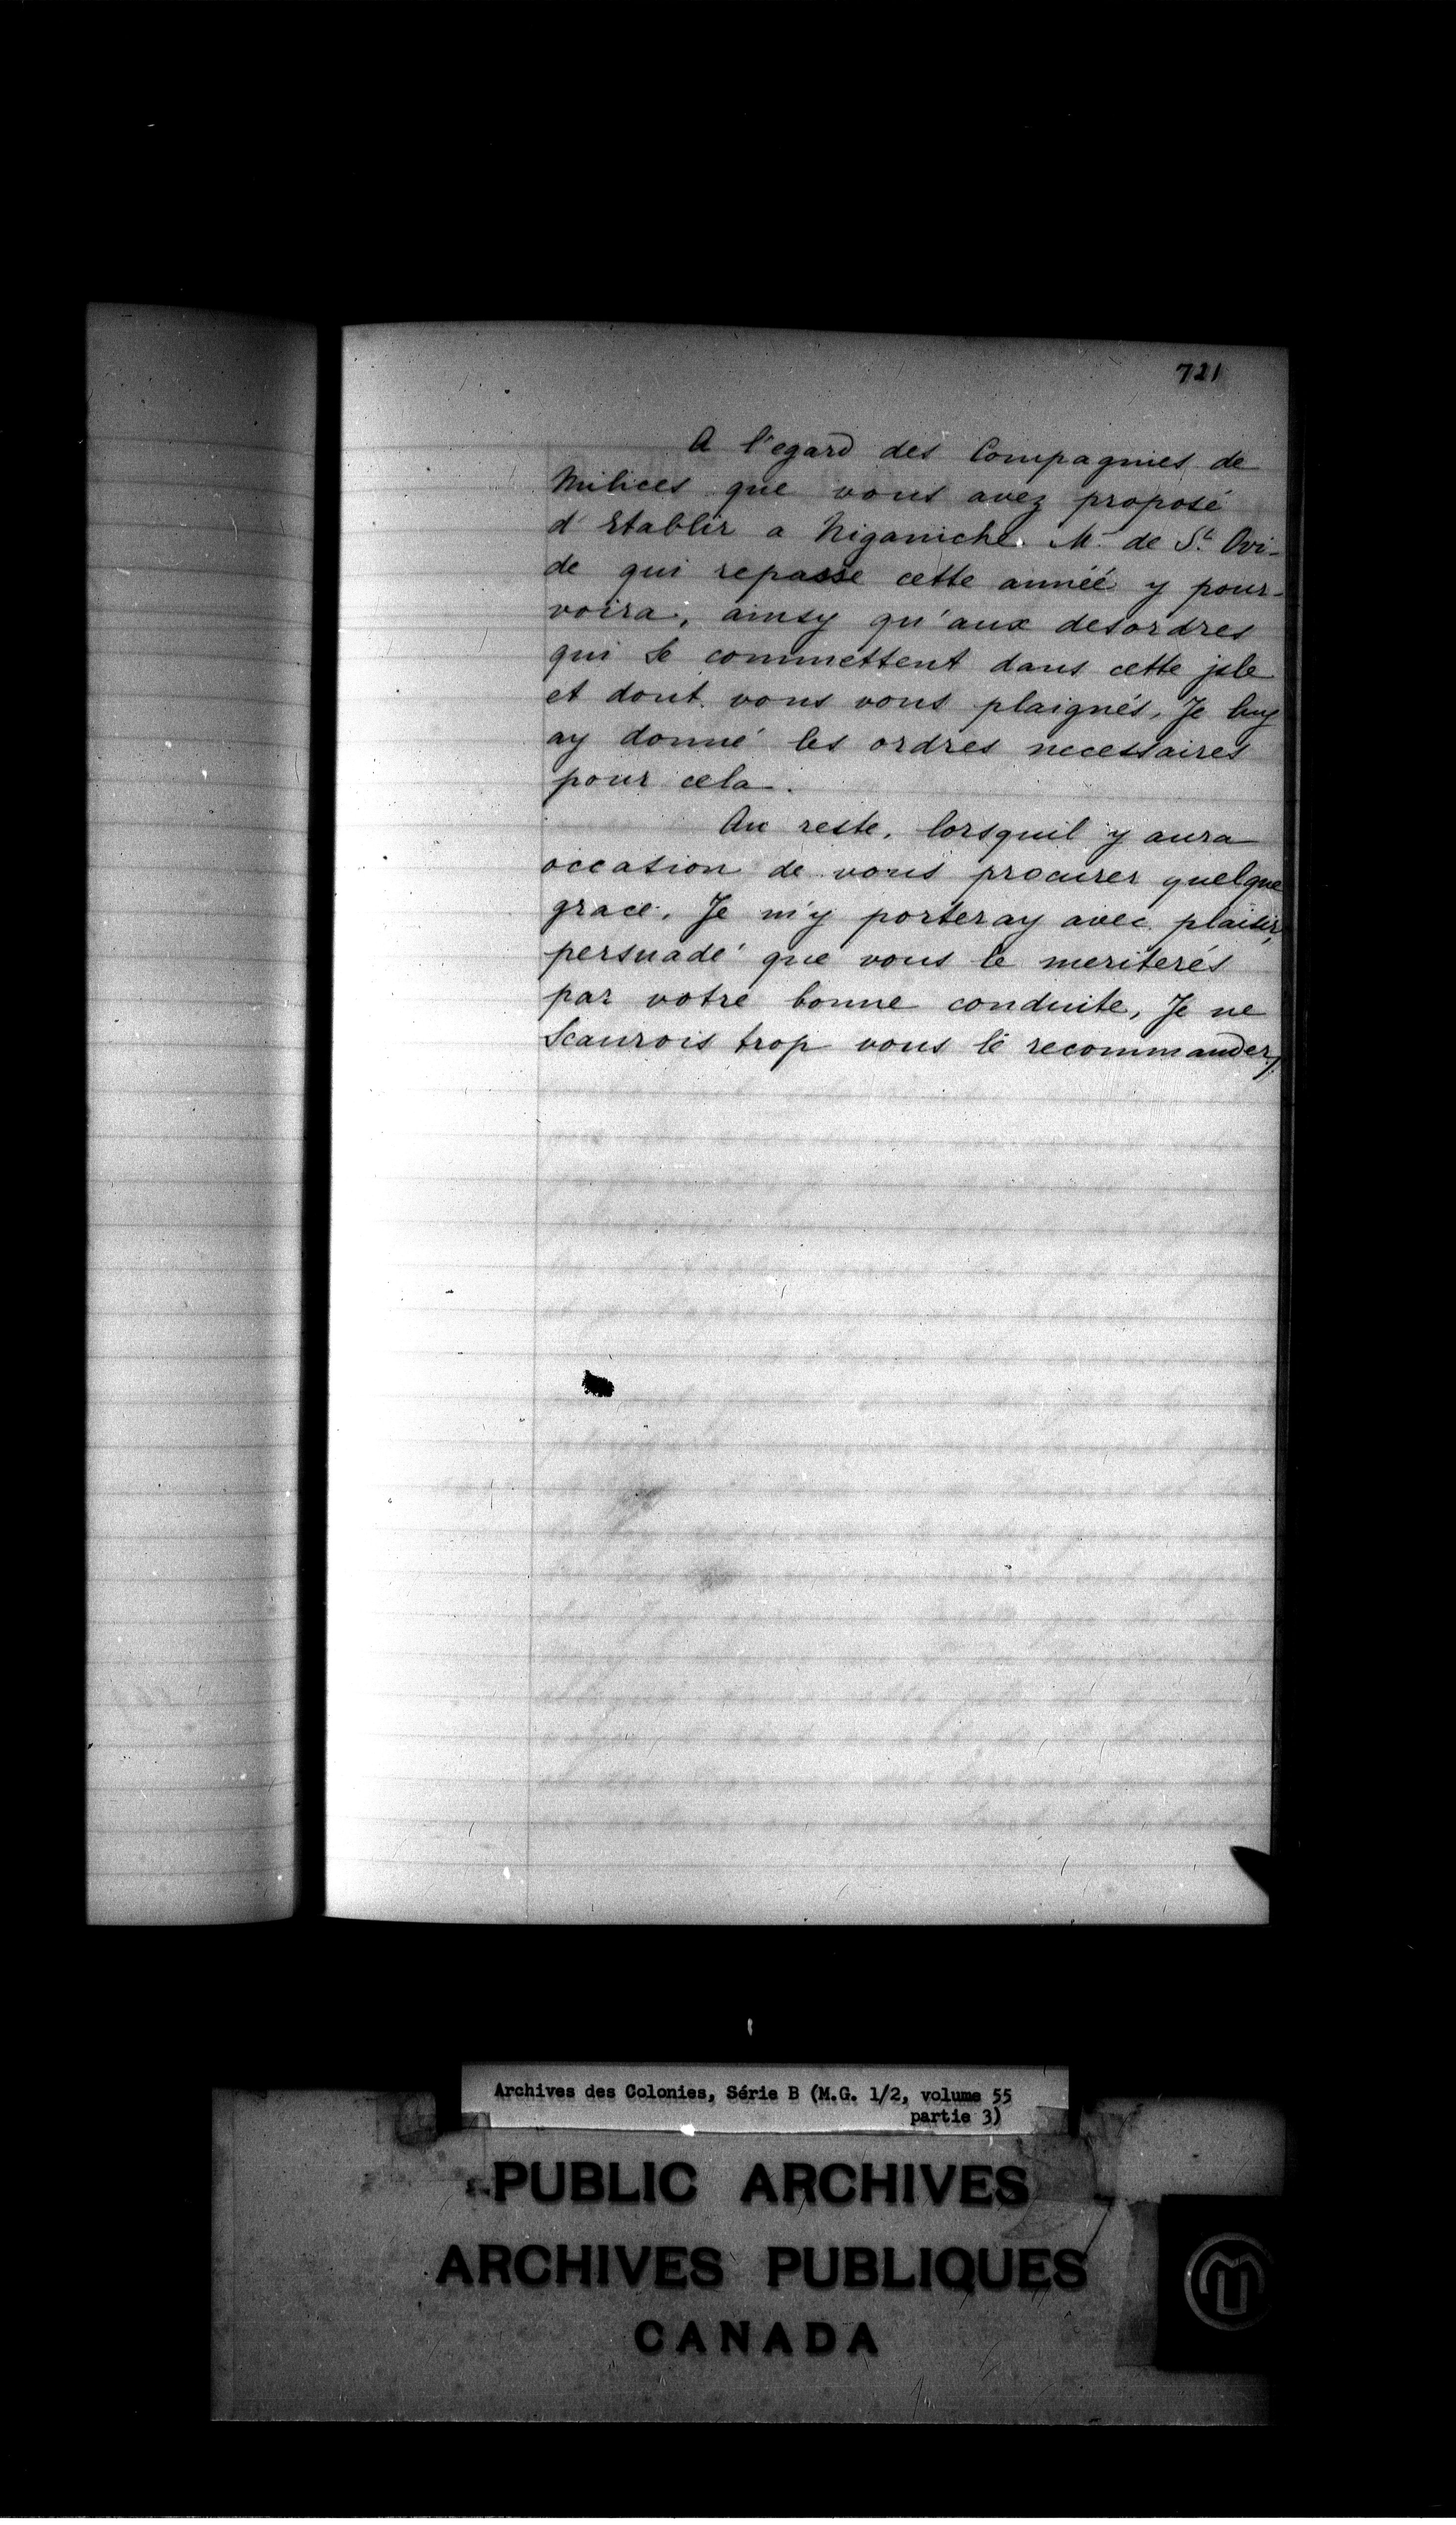 721
A l'egard des Compagnies de
Milices que vous avez proposé
d'Etablir a Niganiche. Mr de St. Ovi-
de qui repasse cette année y pour-
voira, ainsy qu'aux desordres
qui se commettent dans cette jsle
et dont vous vous plaignés, Je luy
ay donné les ordres necessaires
pour cela.
Au reste, lorsquil y aura
occasion de vous procurer quelque
grace, Je m'y porteray avec plaisir,
persuadé que vous le meriterés
par votre bonne conduite, Je ne
Scaurois trop vous le recommander,
Archives des Colonies, Série B (M.G. 1/2, volume 55
partie 3)
PUBLIC ARCHIVES
ARCHIVES PUBLIQUES
CANADA